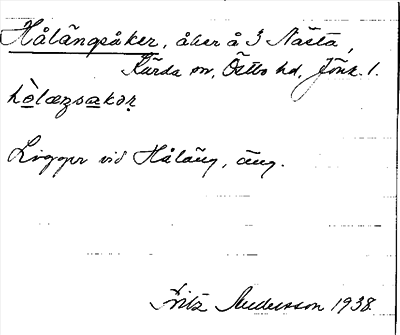 Hålängsåker, åker å 3 Nästa,
Kärda sn, Östbo hd, Jönk. l.
Ligger vid Håläng, äng.
Fritz Andersson 1938.